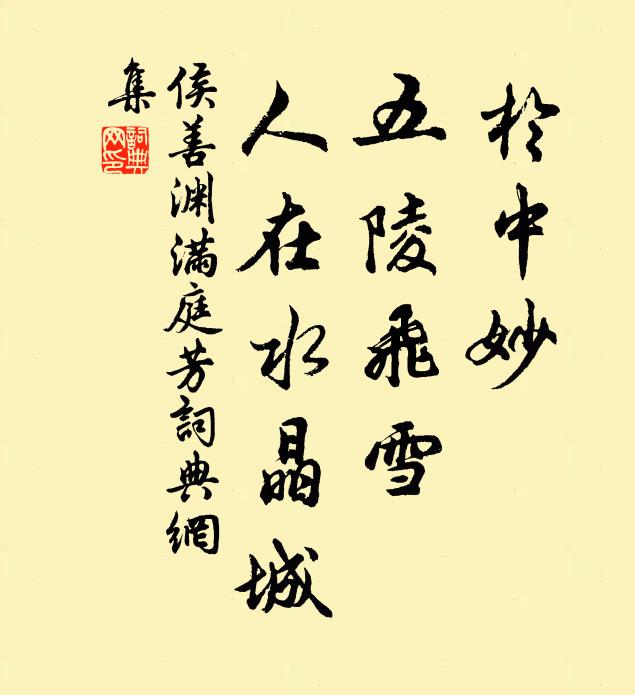 於中妙
五陵飛雪
人在水晶城
侯善渊满庭芳詞典網
集
詞典
网印